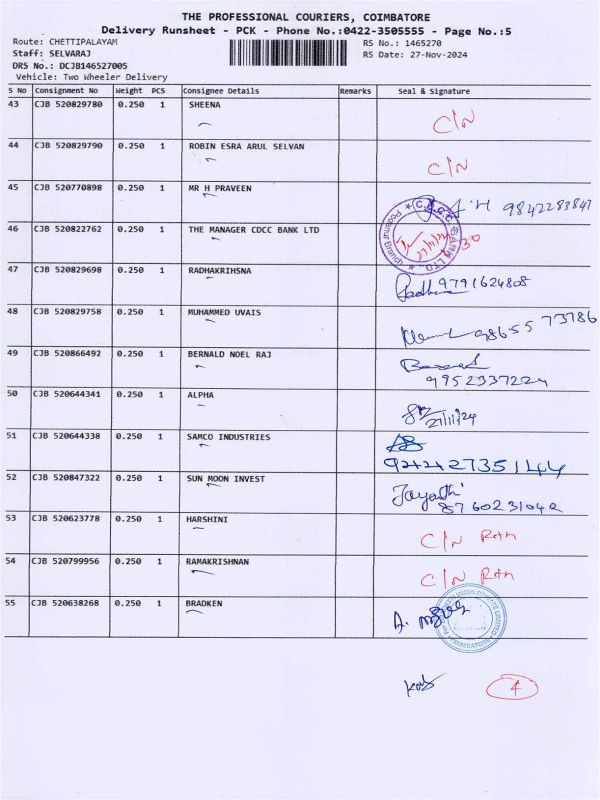 THE PROFESSIONAL COURIERS, COIMBATORE
Delivery Runsheet - PCK - Phone No.:0422-3505555 - Page No.:5
Route: CHETTIPALAYAM RS No.: 1465270
Staff: SELVARAJ RS Date: 27-Nov-2024
DRS No.: DCJB146527005
Vehicle: Two Wheeler Delivery
S No Consignment No Weight PCS Consignee Details Remarks Seal & Signature
43 CJB 520829780 0.250 1 SHEENA C/N
44 CJB 520829790 0.250 1 ROBIN ESRA ARUL SELVAN C/N
45 CJB 520770898 0.250 1 MR H PRAVEEN 9842283841
46 CJB 520822762 0.250 1 THE MANAGER CDCC BANK LTD
47 CJB 520829698 0.250 1 RADHAKRIHSNA 9791624808
48 CJB 520829758 0.250 1 MUHAMMED UVAIS 98655 73786
49 CJB 520866492 0.250 1 BERNALD NOEL RAJ
9952337224
50 CJB 520644341 0.250 1 ALPHA 27/11/24
51 CJB 520644338 0.250 1 SAMCO INDUSTRIES
52 CJB 520847322 0.250 1 SUN MOON INVEST Jayanthi
8760231042
53 CJB 520623778 0.250 1 HARSHINI C/N
54 CJB 520799956 0.250 1 RAMAKRISHNAN C/N
55 CJB 520638268 0.250 1 BRADKEN
4